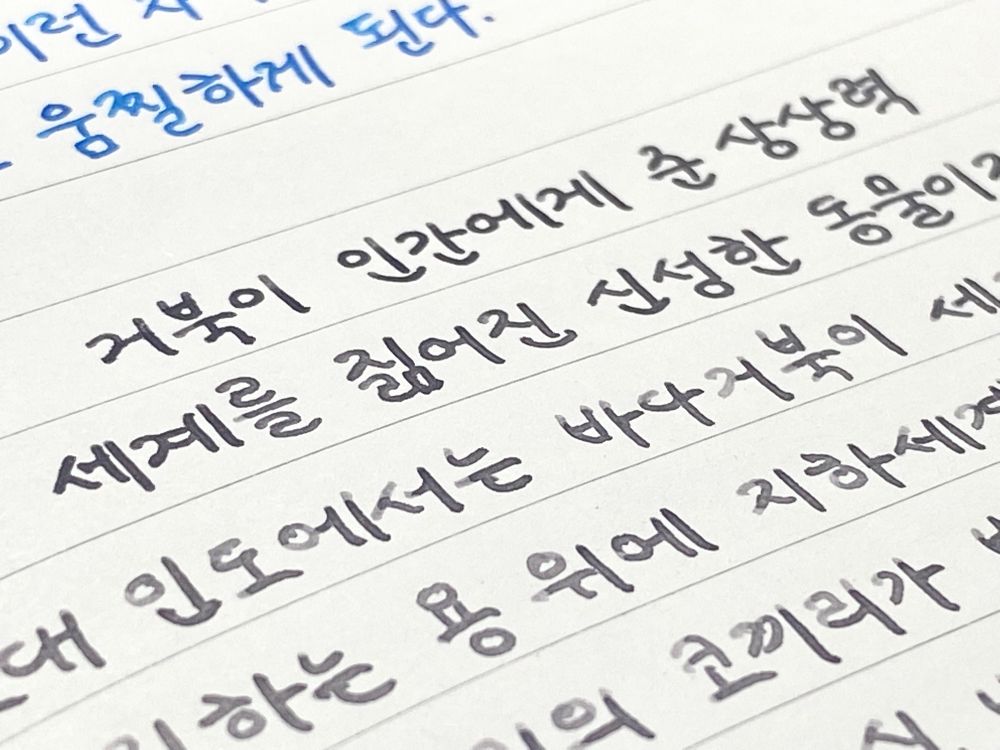 이런
움찔하게 된다.
거북이 인간에게 준 상상력
세계를 짊어진 신성한 동물이
인도에서는 바다거북이 세
하는 용 위에 지하세계
의 코끼리가